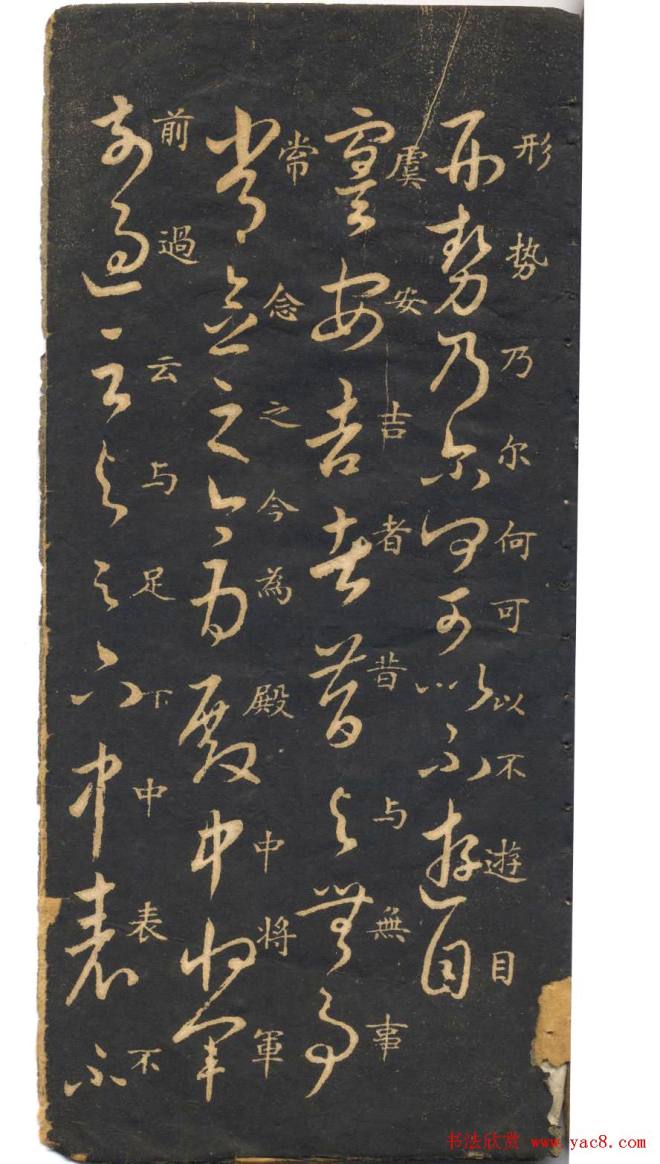 形势乃尔何可以不遊目
虞安吉者昔与無事
常念之今為殿中将軍
前過云与足下中表不
书法欣赏 www.yac8.com